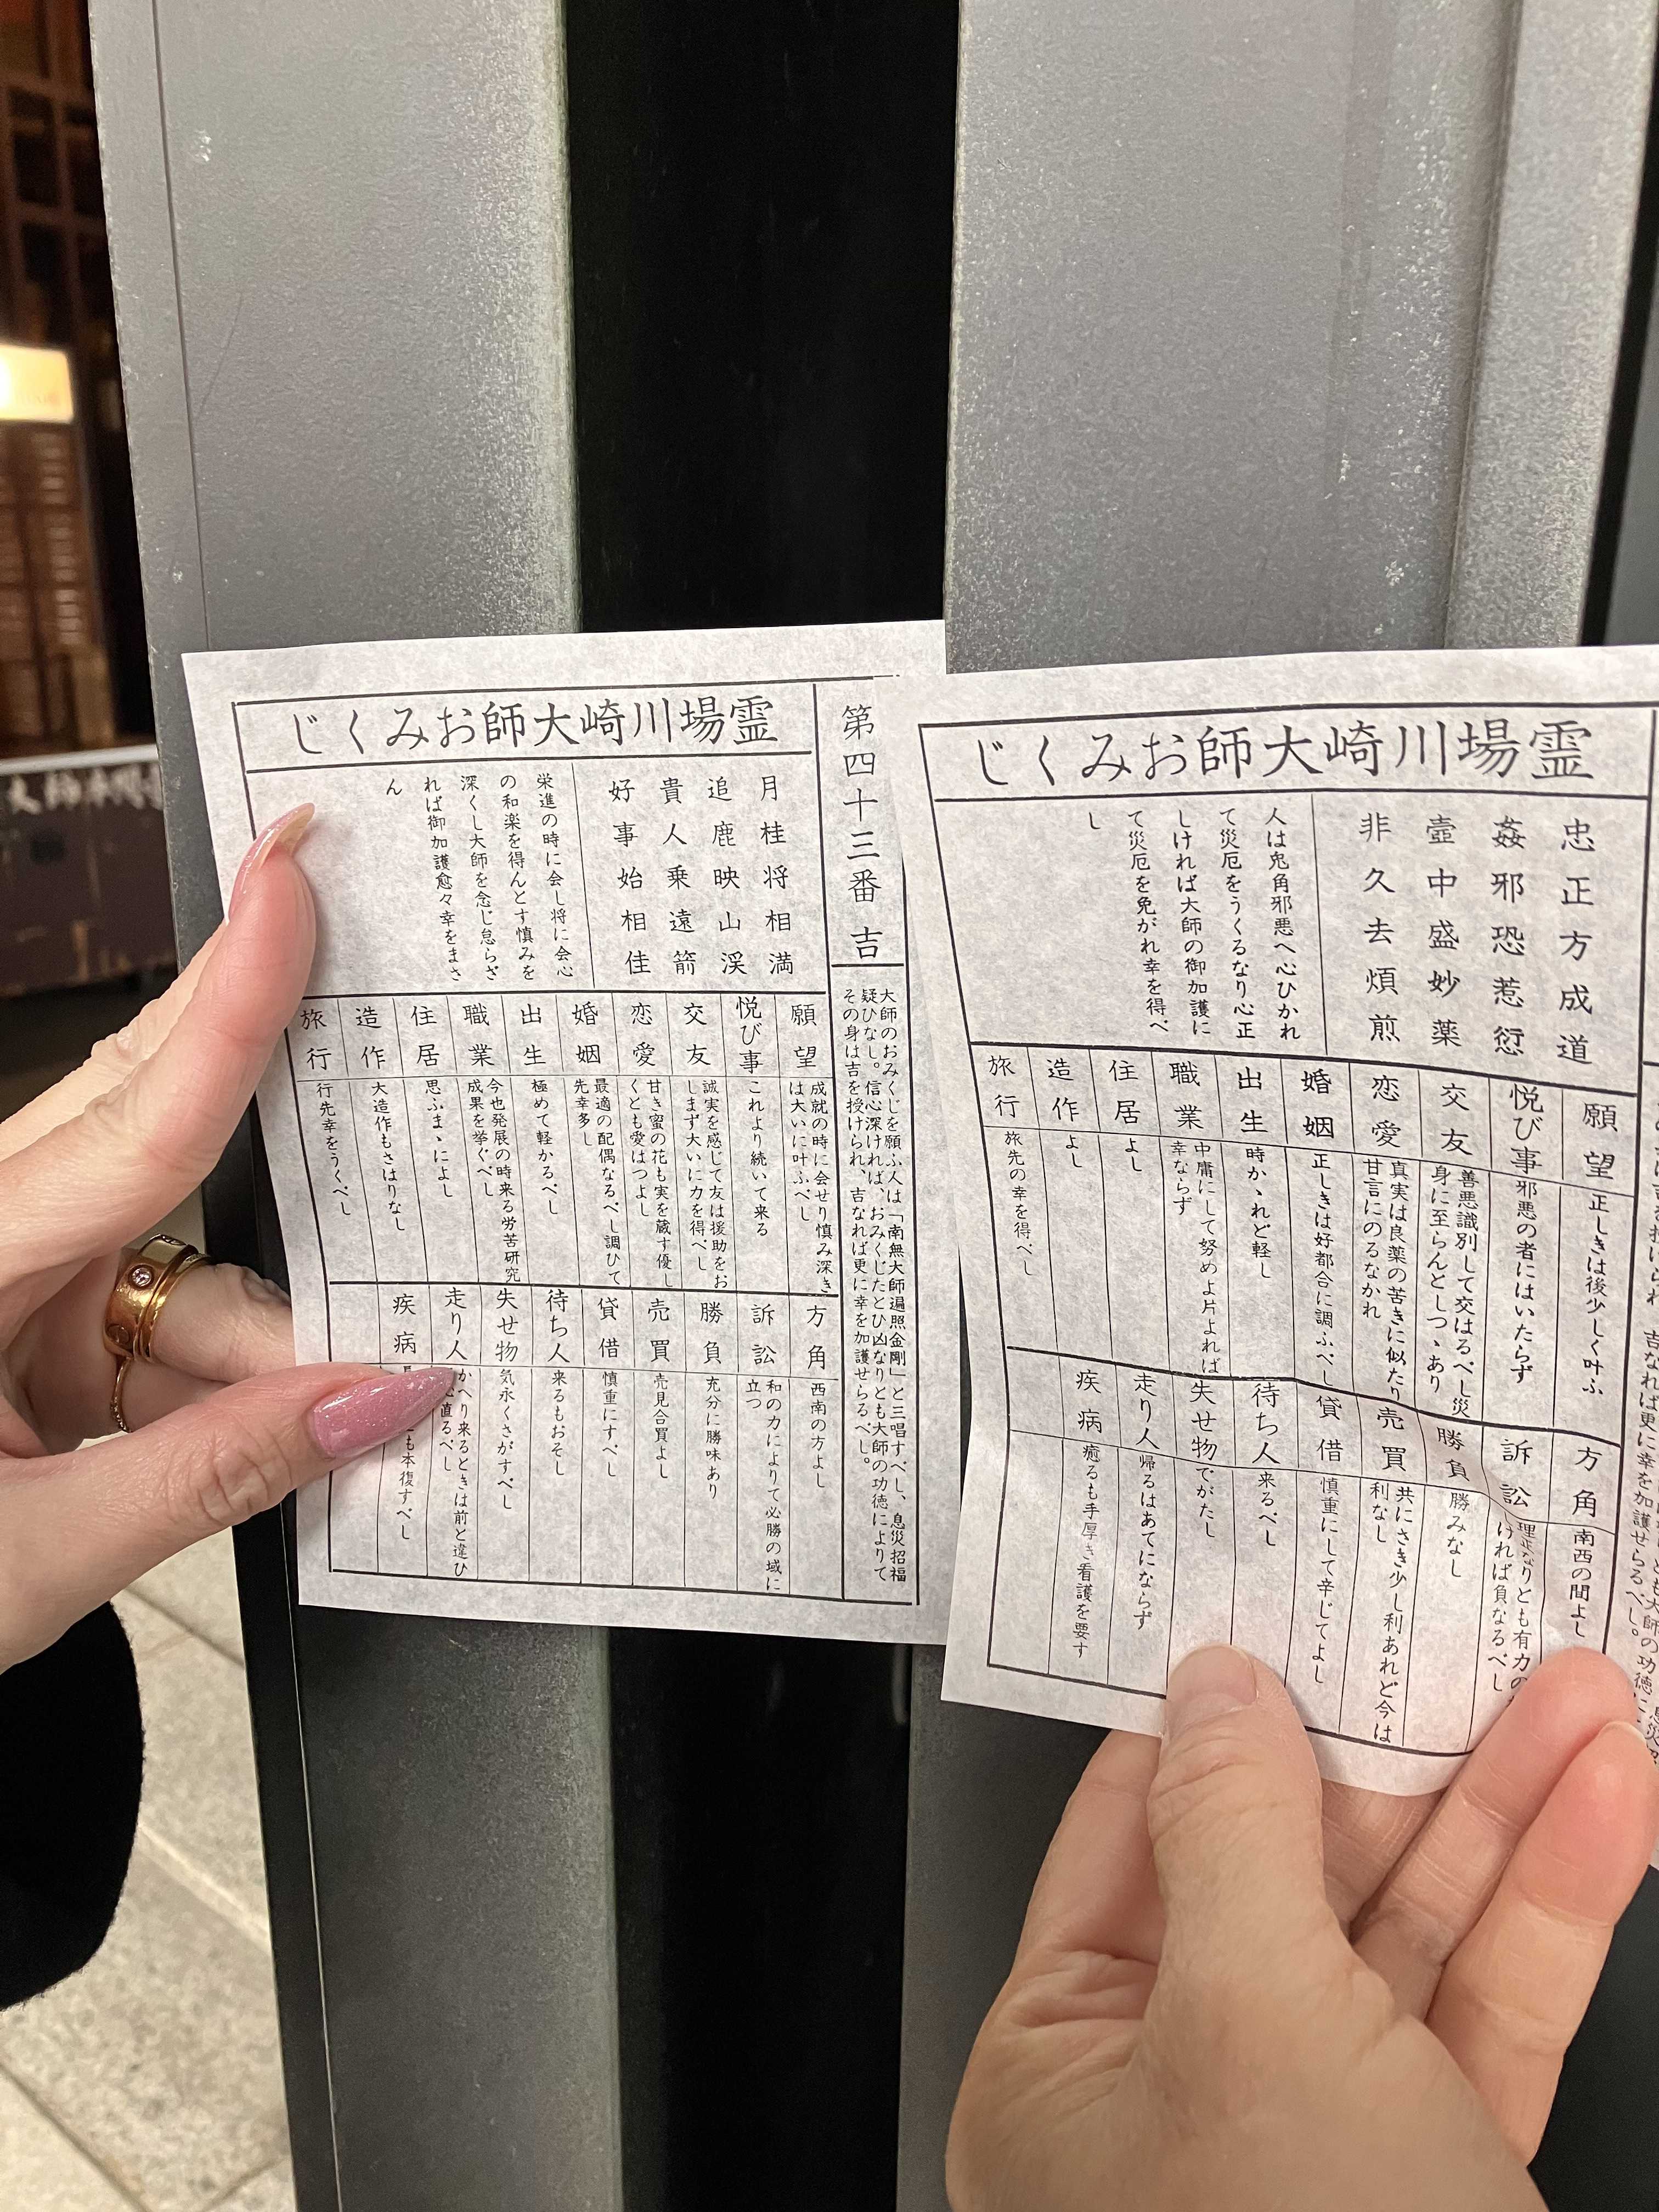 霊場川崎大師おみくじ
第四十三番 吉
大師のおみくじを願ふ人は「南無大師遍照金剛」と三唱すべし、息災招福
疑ひなし。信心深ければ、おみくじたとひ凶なりとも大師の功徳によりて
その身は吉を授けられ、吉なれば更に幸を加護せらるべし。
月桂将相満
追鹿映山渓
貴人乗遠箭
好事始相佳
栄進の時に会し将に会心
の和楽を得んとす慎みを
深くし大師を念じ怠らざ
れば御加護愈々幸をまさ
ん
願望
成就の時に会せり慎み深き
は大いに叶ふべし
悦び事
これより続いて来る
交友
誠実を感じて友は援助をお
しまず大いに力を得べし
恋愛
甘き蜜の花も実を蔵す優し
くとも愛はつよし
婚姻
最適の配偶なるべし調ひて
先幸多し
出生
極めて軽かるべし
職業
今也発展の時来る労苦研究
成果を挙ぐべし
住居
思ふまゝによし
造作
大造作もさはりなし
旅行
行先幸をうくべし
方角
西南の方よし
訴訟
和の力によりて必勝の域に
立つ
勝負
充分に勝味あり
売買
売見合買よし
貸借
慎重にすべし
待ち人
来るもおそし
失せ物
気永くさがすべし
走り人
かへり来るときは前と違ひ
直るべし
疾病
も本復すべし
霊場川崎大師おみくじ
忠正方成道
姦邪恐惹愆
壺中盛妙薬
非久去煩煎
人は兎角邪悪へ心ひかれ
て災厄をうくるなり心正
しければ大師の御加護に
て災厄を免がれ幸を得べ
し
願望
正しきは後少しく叶ふ
悦び事
邪悪の者にはいたらず
交友
善悪識別して交はるべし災
身に至らんとしつゝあり
恋愛
真実は良薬の苦きに似たり
甘言にのるなかれ
婚姻
正しきは好都合に調ふべし
出生
時かゝれど軽し
職業
中庸にして努めよ片よれば
幸ならず
住居
よし
造作
よし
旅行
旅先の幸を得べし
方角
南西の間よし
訴訟
理正なりとも有力の
ければ負なるべし
勝負
勝みなし
売買
共にさき少し利あれど今は
利なし
貸借
慎重にして辛じてよし
待ち人
来るべし
失せ物
でがたし
走り人
帰るはあてにならず
疾病
癒るも手厚き看護を要す